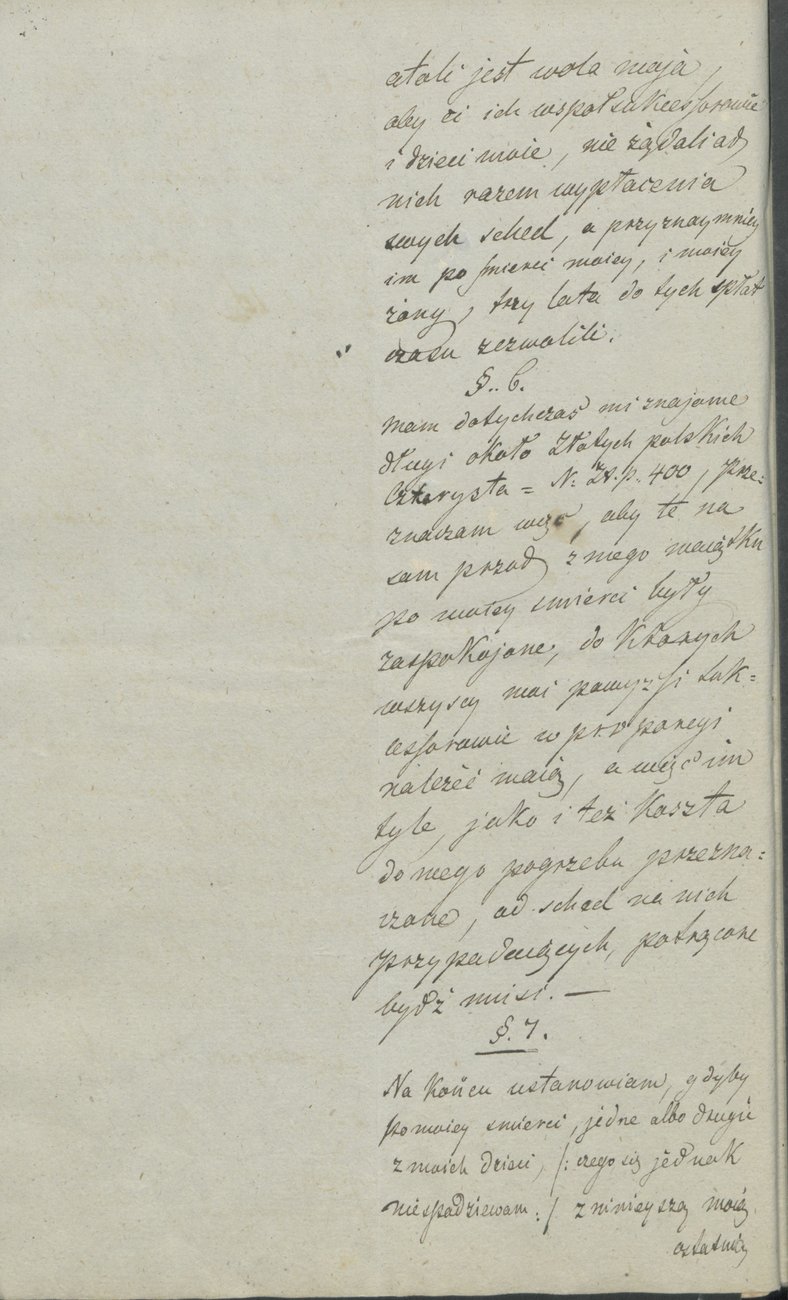 atoli jest wola moja,
aby ci ich wspołsukcessorowie
i dzieci moie, nie żądali od
nich razem wypłacenia
swych sched, a przynaymniey
im po śmierci moiey, i moiey
żony, trzy lata do tych spłat
czasu zezwolili.
§.. 6.
Mam dotychczas mi znajome
długi około Złotych polskich
Czterysta = N: Zł. p. 400, prze=
znaczam więc, aby te na
sam przod z mego maiątku
po moiey smierci były
zaspokojone, do ktorych
wszyscy moi powyżsi suk=
cessorowie w proporcyi
należeć maią, a więc im
tyle, jako i też koszta
do mego pogrzebu przezna=
czone, od sched na nich
przypadaiących, potrącone
bydź musi. —
§. 7.
Na końcu ustanowiam, gdyby
po moiey smierci, jedne albo drugie
z moich dzieci, /: czego się jednak
niespodziewam :/ z ninieyszą moią
ostatnią